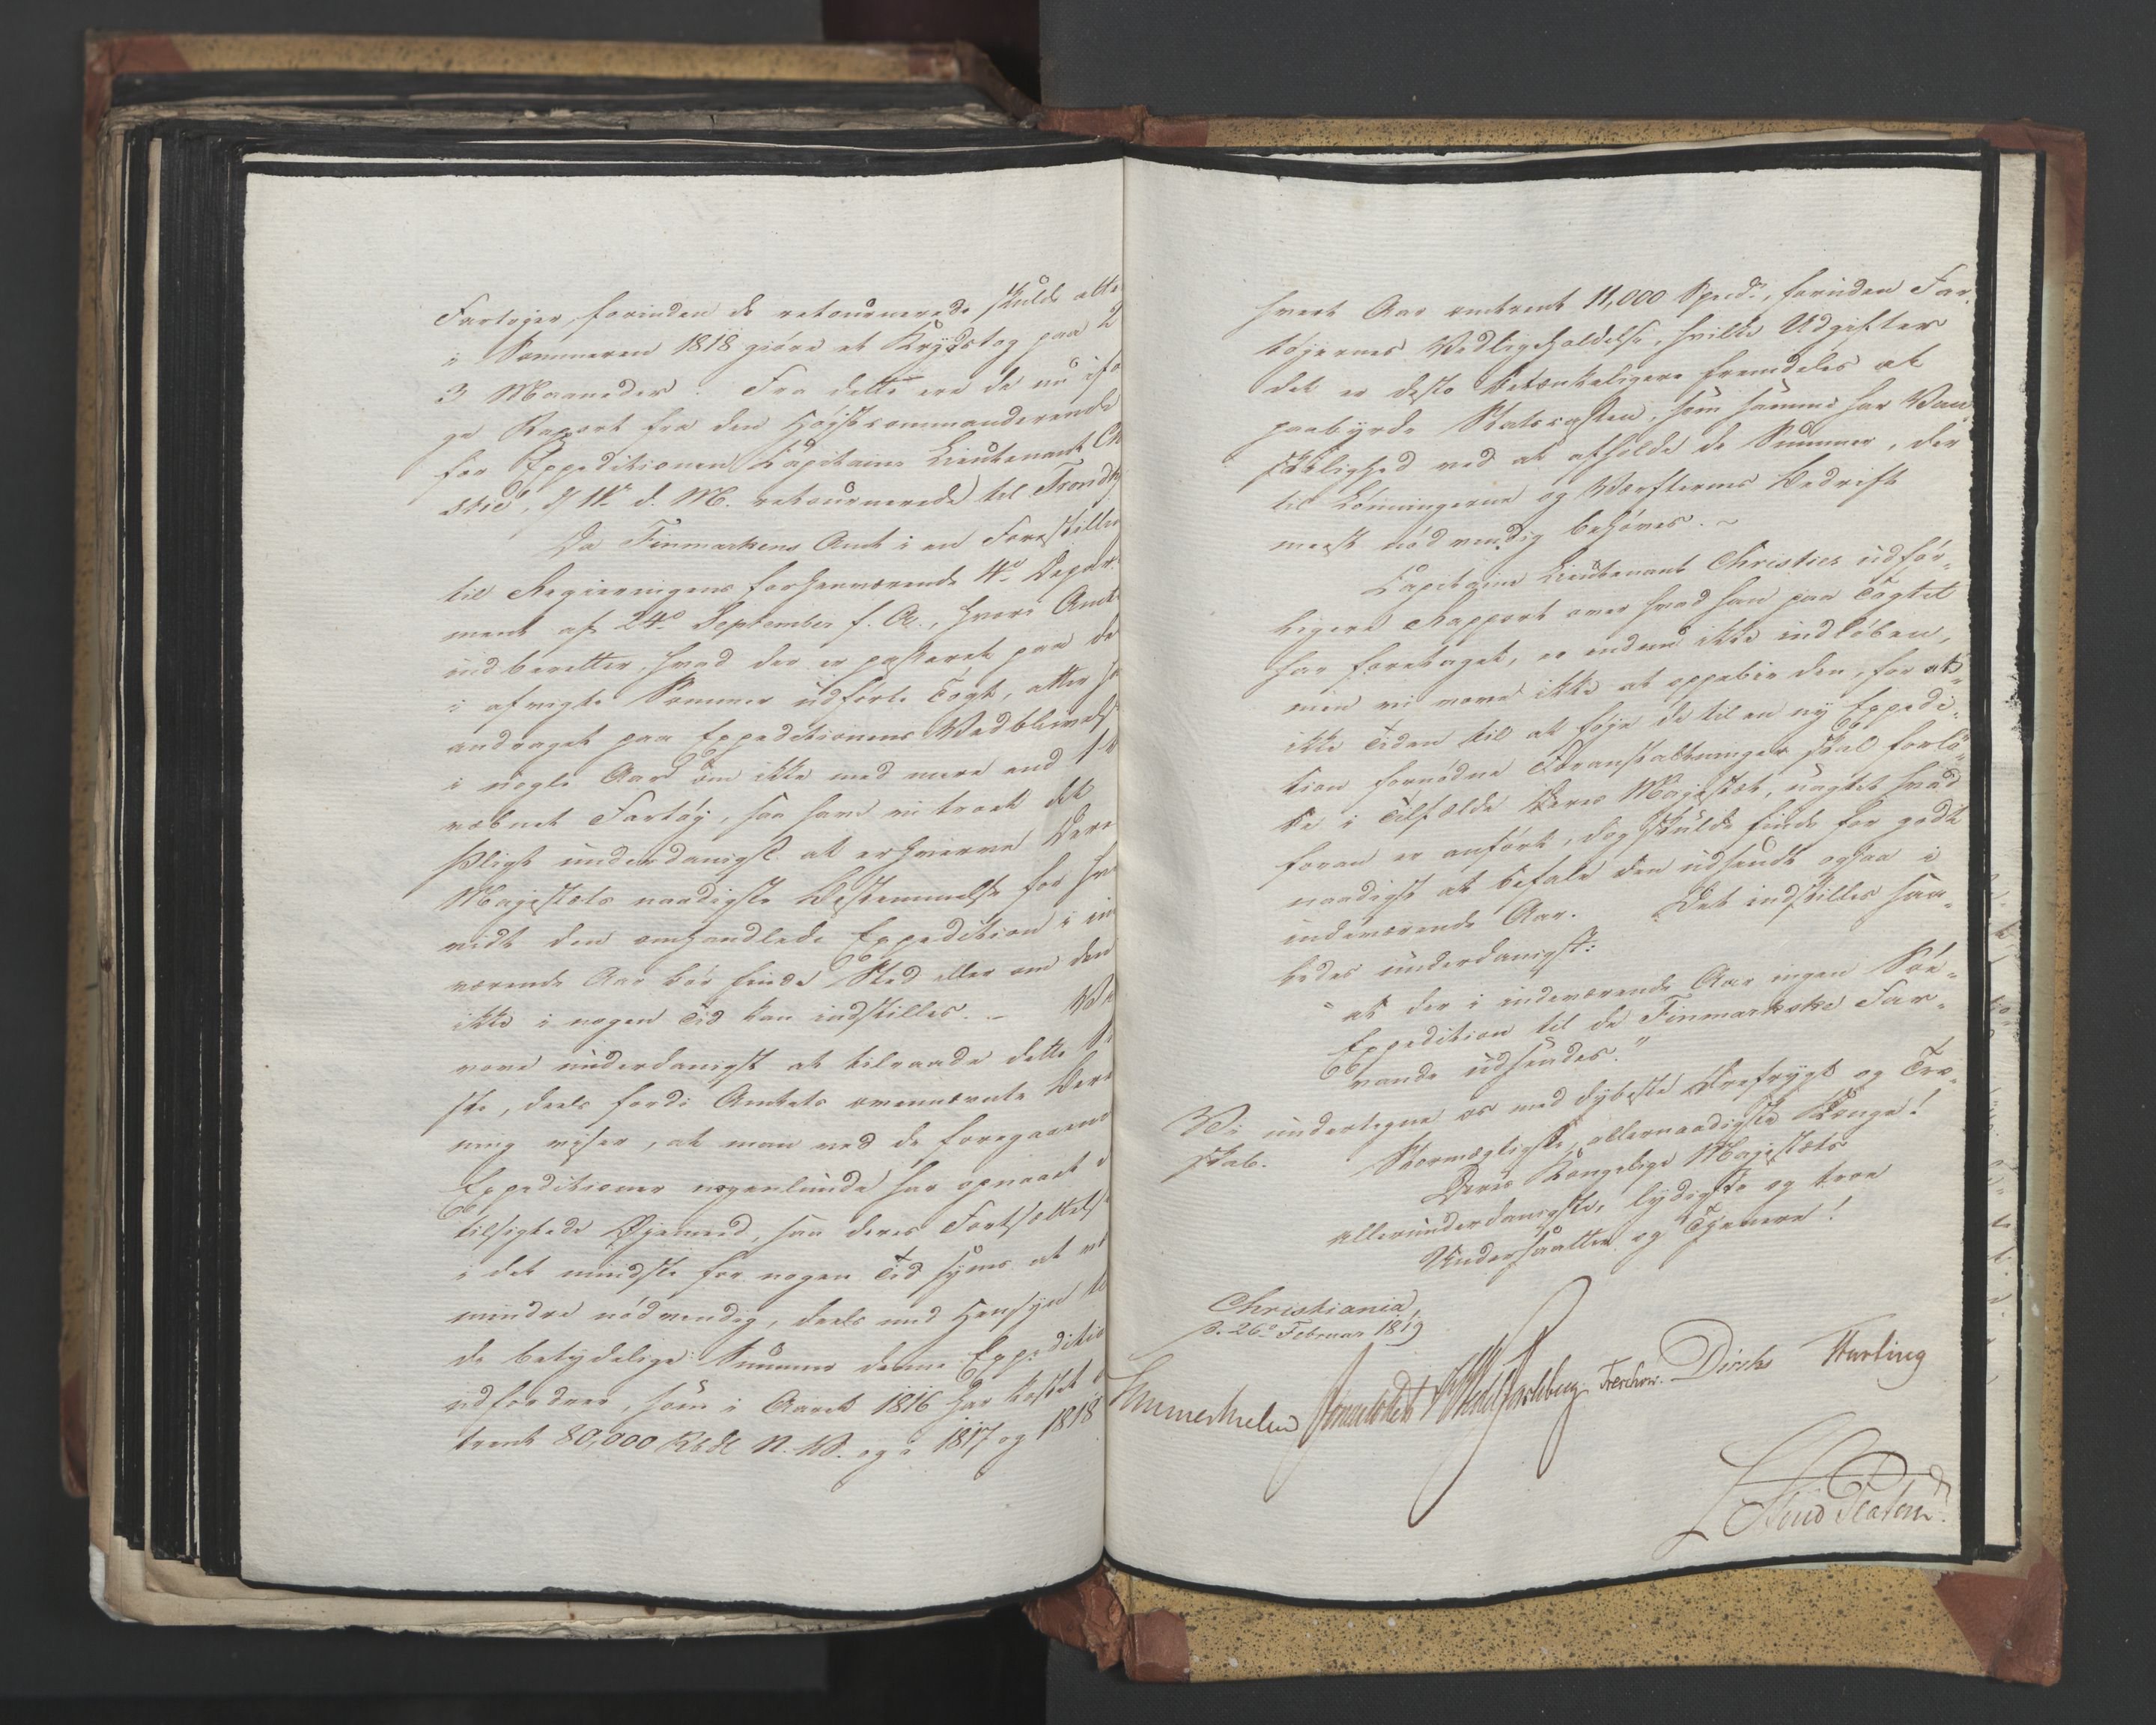 Fartøjer, forinden de retournerede skulde atter
i Sommeren 1818 giøre et Krydstog paa 2
3 Maaneder. Fra dette ere de nu ifø
ge Raport fra den Høystcommanderende
for Expeditionen Capitaine Lieutenant Ch
stie, d. M. retournerede til Trondhj
Da Finmarkens Amt i en Forestilling
til Regieringens forhenværende 4de Depar
ment af 24de September f. A., hvori Amt
indberetter, hvad der er passeret paa de
i afvigte Sommer udførte Togt, atter ha
andraget paa Expeditionens Vedblivelse
i nogle Aar om ikke med mere end 1
væbnet Fartøj, saa have vi troet det
Pligt underdanigst at erhverve Dere
Majestæts naadigste Bestemmelse for hvo
vidt den omhandlede Expedition i in
værende Aar bør finde Sted eller om den
ikke i nogen Tid kan indstilles. –
vove underdanigst at tilraade dette Si
ste, deels fordi Amtets ovennævnte Beret
ning viser, at man ved de foregaaende
Expeditioner nogenlunde har opnaaet d
tilsigtede Øjemeed, saa deres Fortsættelse
i det mindste for nogen Tid synes at væ
mindre nødvendig, deels med Hensyn til
de betydelige Summer denne Expedition
udfordrer, som i Aaret 1816 har kostet o
trent 80,000 Rbdl N. V. og i 1817 og 1818
hvert Aar omtrent 11,000 Specd., foruden Far-
tøjernes Vedligeholdelse, hvilke Udgifter
det er desto betænkeligere fremdeles at
paabyrde Statscassen, som samme har Van-
skelighed ved at afholde de Summer, der
til Lønningerne og Værfternes Bedrift
meest nødvendig behøves. ~
Capitaine Lieutenant Christies udfør-
ligere Rapport over hvad han paa Togtet
har foretaget, er endnu ikke indløben,
men vi vove ikke at oppebie den, for at
ikke Tiden til at føye de til en ny Expedi-
tion fornødne Foranstaltninger skal forlø-
be i Tilfælde Deres Majestæt, uagtet hvad
foran er anført, dog skulde finde for godt
naadigst at befale den udsendt ogsaa i
indeværende Aar. Det indstilles saa-
ledes underdanigst:
"at der i indeværende Aar ingen Søe-
Expedition til de Finmarkske Far-
vande udsendes."
Vi undertegne os med dybeste Ærefrygt og Tro-
skab.
Stormægtigste, allernaadigste Konge!
Deres Kongelige Majestæts
allerunderdanigste, lydigste og troe
Undersaatter og Tjenere!
Christiania,
d. 26de Februar 1819
Sommerhielm Wedel Jarlsberg Treschow. Diriks